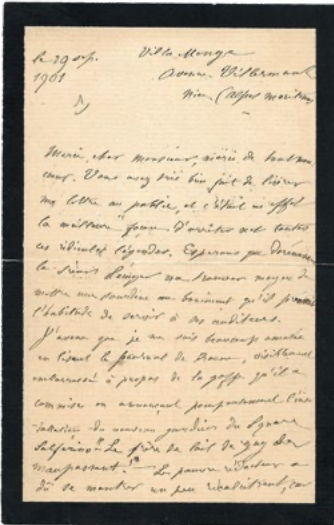 le 29 sep. Villa Monge
1901 Avenue
Nice (Alpes Maritimes
Merci, cher monsieur, merci de tout mon
cœur. Vous avez très bien fait de livrer
ma lettre au public, et c'était en effet
la meilleure d'arrêter net toutes
ces ridicules légendes. Esperons que
le sieur trouver moyen de
mettre une sourdine au boniment qu'il
l'habitude de servir à ses auditeurs.
J'avoue que je me suis beaucoup amusée
en lisant le journal de Rouen, visiblement
embarrassé à propos de la gaffe qu'il a
commise en annonçant pompeusement
du nouveau gardien du Square
Solférino "Le frère de lait de Guy de
Maupassant!" Le pauvre rédacteur a
dû se montrer un peu récalcitrant, car